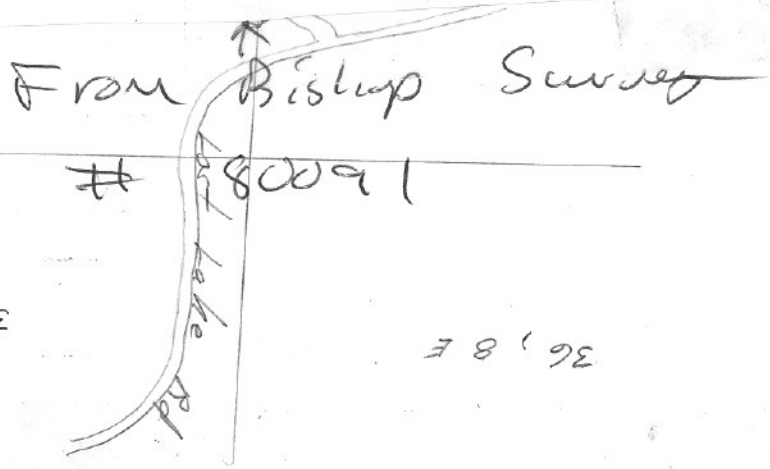 From Bishop Survey
# 80091
Lost Lake Rd
36, 8 E